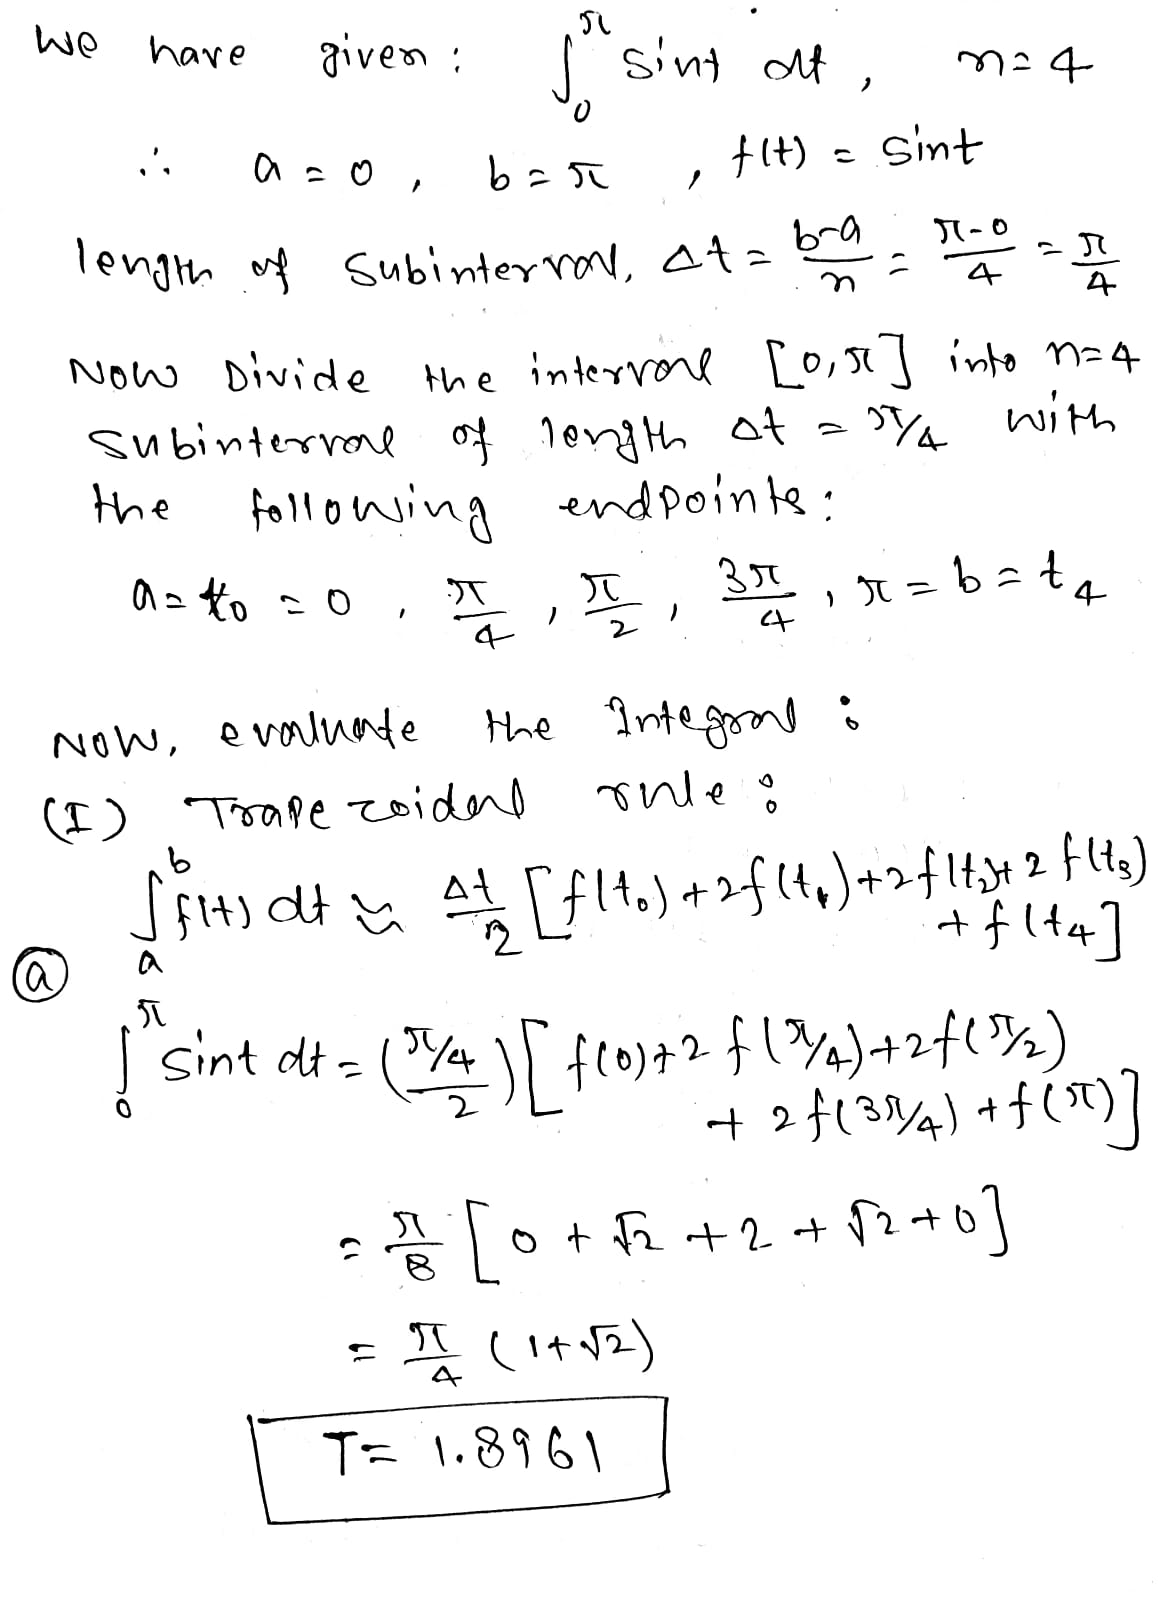 We have given : ∫₀^π sint dt , n=4
∴ a = 0 , b = π , f(t) = sint
length of subinterval, Δt = (b-a)/n = (π-0)/4 = π/4
Now Divide the interval [0,π] into n=4
subinterval of length Δt = π/4 with
the following endpoints :
a = t₀ = 0 , π/4 , π/2 , 3π/4 , π = b = t₄
Now, evaluate the Integral :
(I) Trapezoidal rule :
∫ₐᵇ f(t) dt ≈ Δt/2 [f(t₀) +2f(t₁)+2f(t₂)+ 2 f(t₃)
+ f(t₄]
ⓐ
∫₀^π sint dt = ((π/4)/2) [ f(0)+2 f(π/4)+2f(π/2)
+ 2f(3π/4) + f(π)]
= π/8 [0 + √2 + 2 + √2 + 0]
= π/4 (1+√2)
T = 1.8961